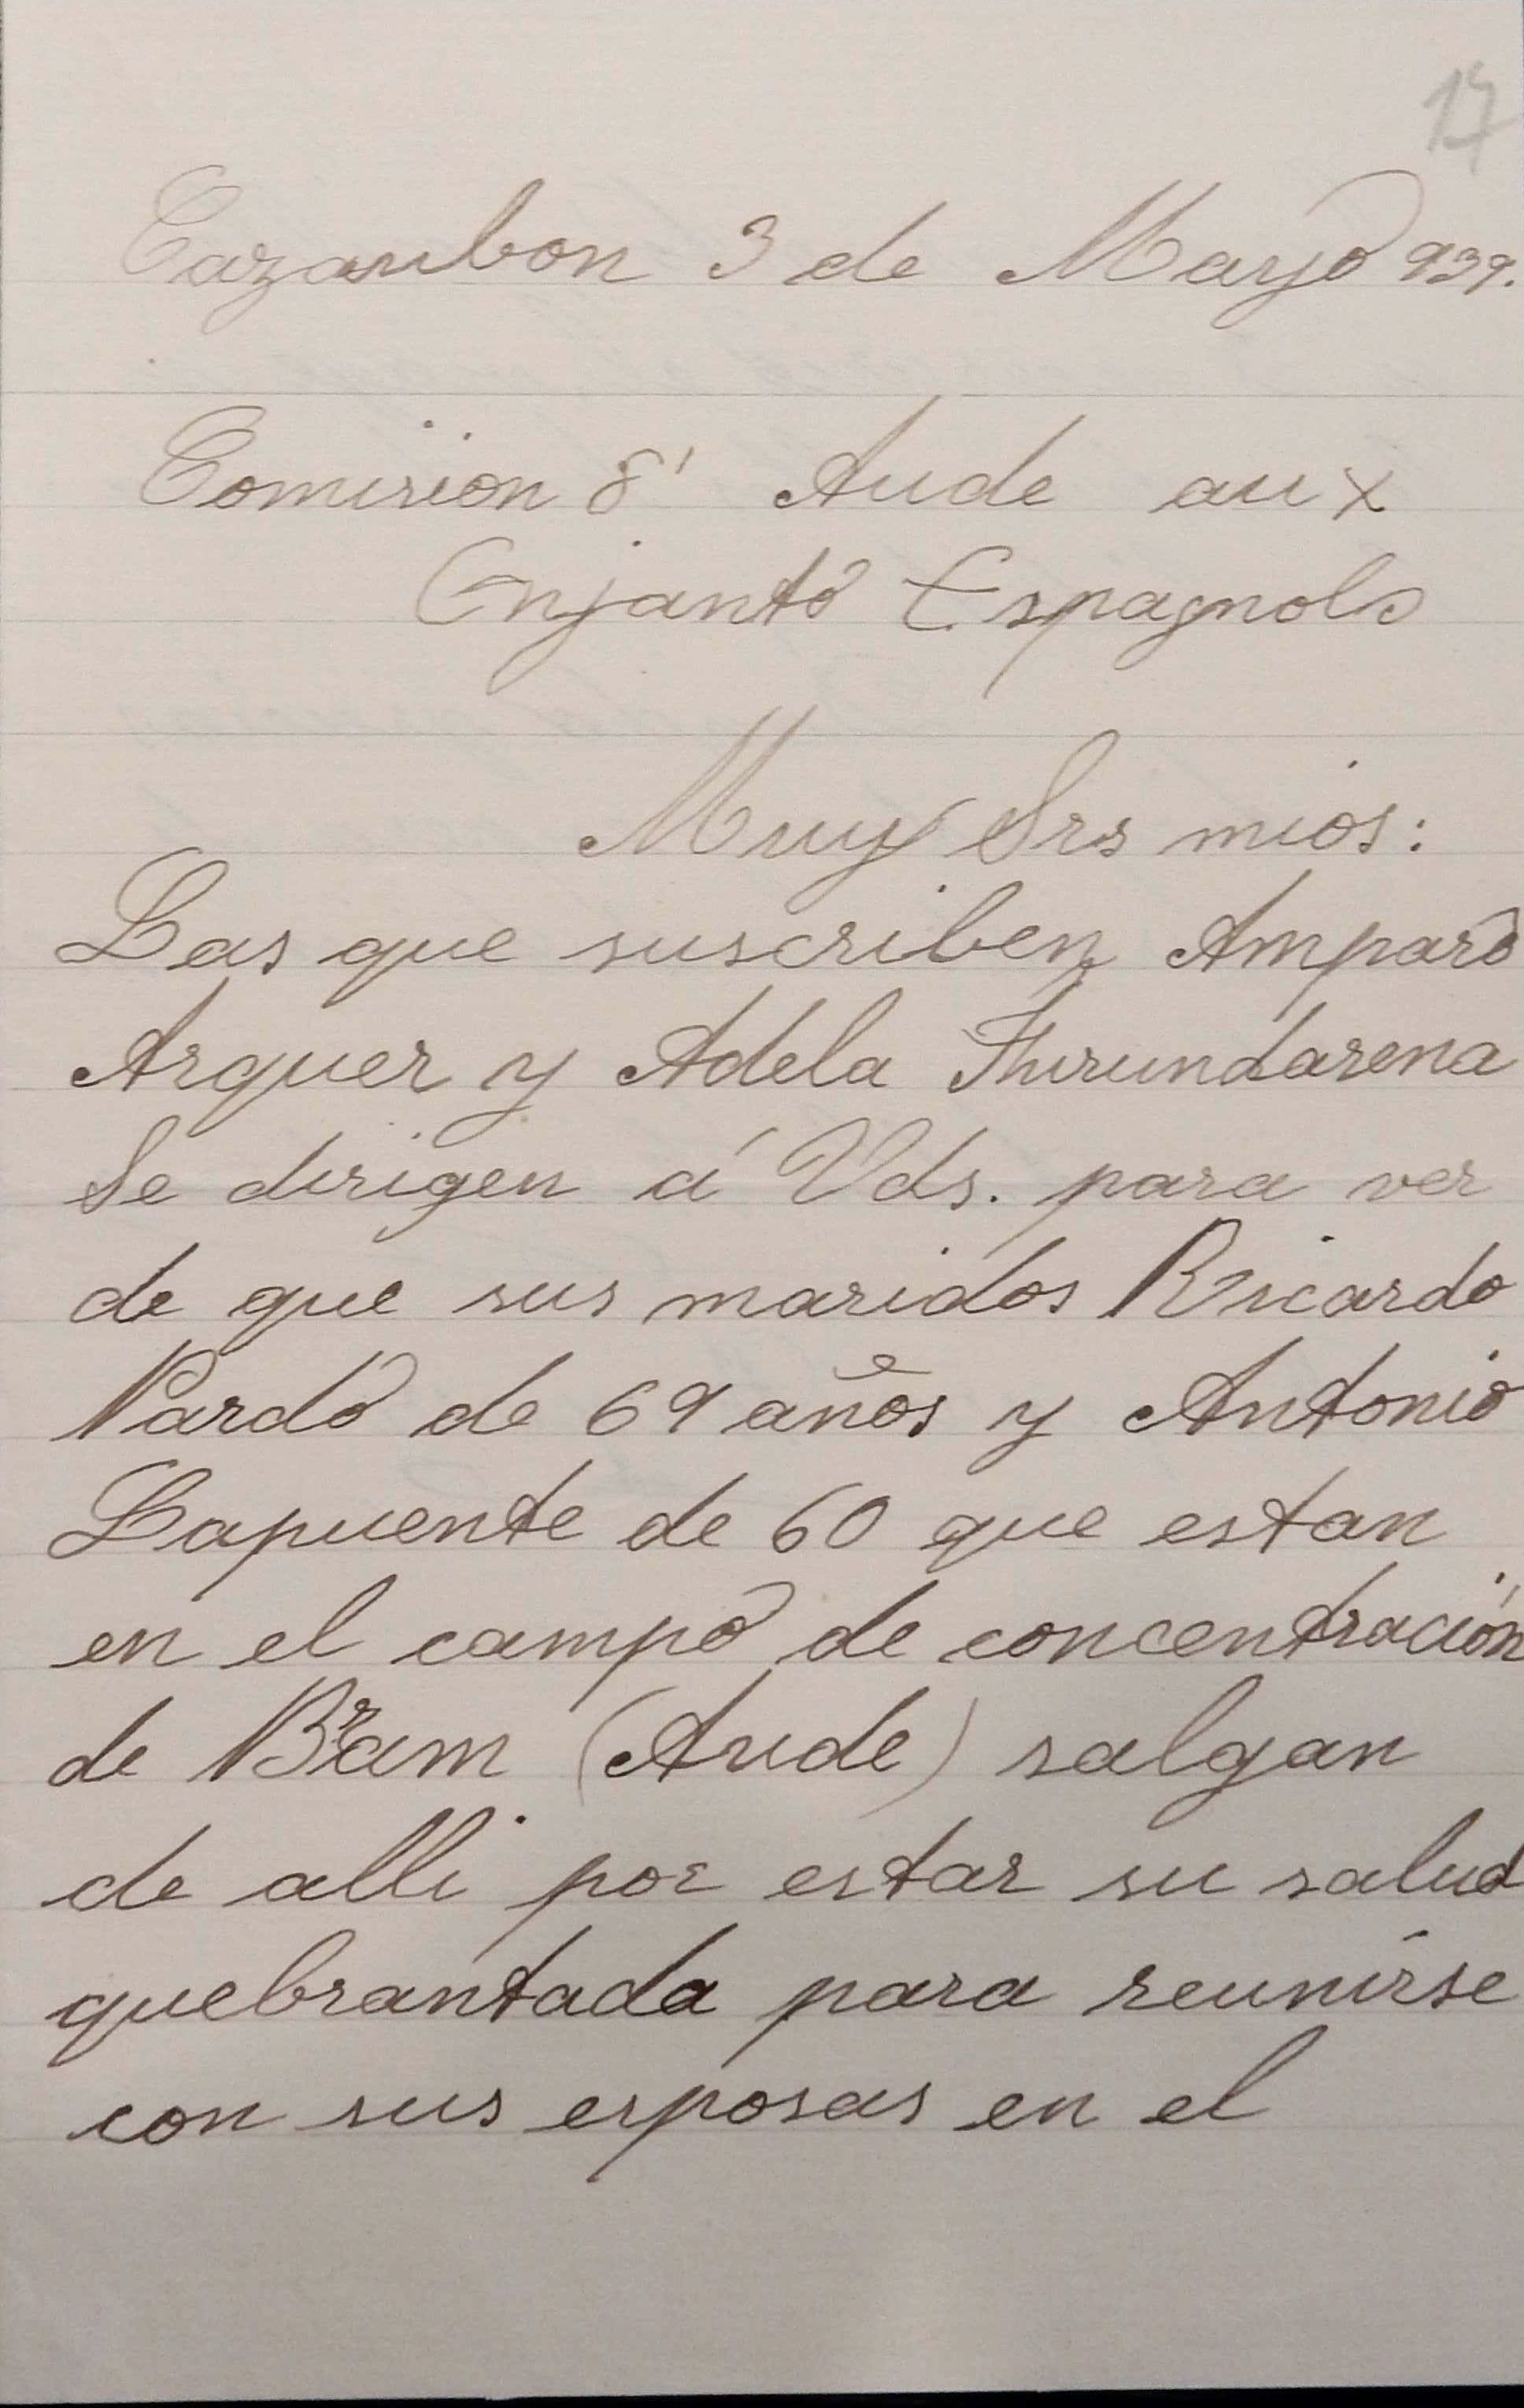 17
Cazaubon 3 de Mayo 939.
Comision d' Aude aux
Enjants Espagnols
Muy Srs mios:
Las que suscriben Amparo
Arguer y Adela
Se dirigen á Vds. para ver
de que sus maridos Ricardo
Pardo de 69 años y Antonio
Lapuente de 60 que estan
en el campo de concentración
de Bram (Aude) salgan
de alli por estar su salud
quebrantada para reunirse
con sus esposas en el